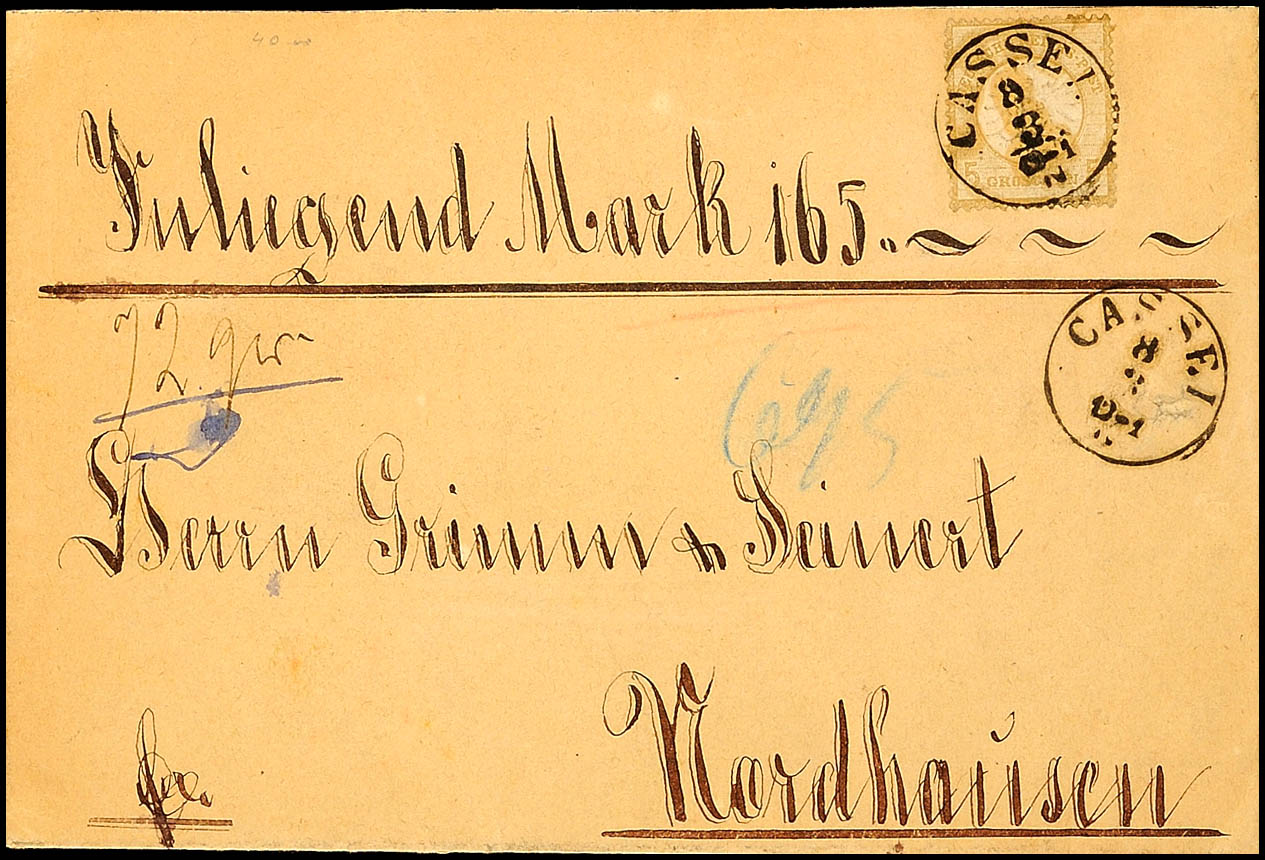 40
CASSEL
8 3
5 GROSCHEN 5
Inliegend Mark 165.
CASSEL
8 3
12-1
72. gr
695
Herrn Grimm & Seinert
Nordhausen
fco.